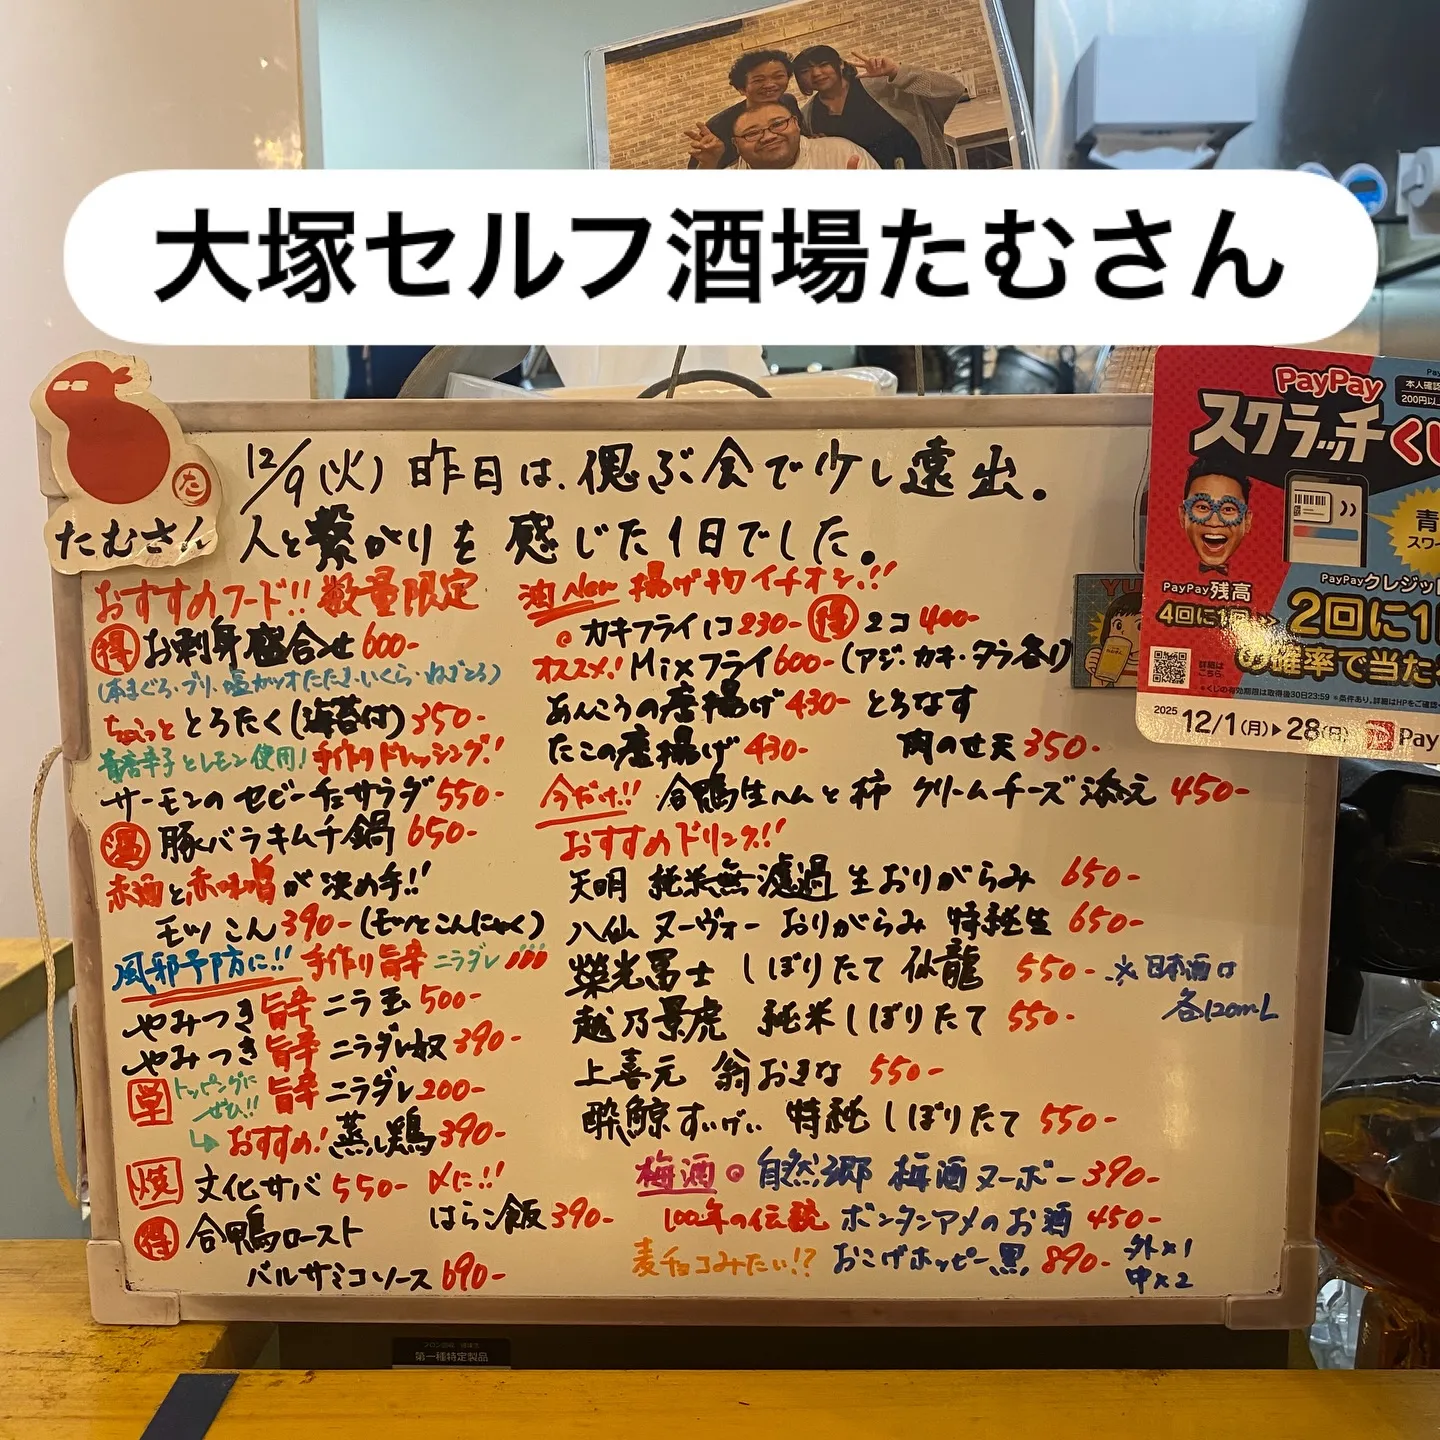 大塚セルフ酒場たむさん
たむさん
た
12/9(火)昨日は、偲ぶ会で少し遠出。
人と繋がりを感じた1日でした。
おすすめフード!!数量限定
得 お刺身盛合せ 600-
(本まぐろ・ブリ・塩カツオたたき・いくら・ねぎとろ)
ちょっと とろたく(海苔付)350-
青唐辛子とレモン使用!手作りドレッシング!
サーモンのセビーチェサラダ 550-
温 豚バラキムチ鍋 650-
赤酒と赤味噌が決め手!!
モツこん 390-(モツとこんにゃく)
風邪予防に!!手作り旨辛ニラダレ
やみつき旨辛ニラ玉 500-
やみつき旨辛ニラダレ奴 390-
トッピングにぜひ!!旨辛ニラダレ 200-
おすすめ!蒸し鶏 390-
焼 文化サバ 550-
〆に!!
はらこ飯 390-
得 合鴨ロースト
バルサミコソース 690-
油 New 揚げ物イチオシ!!
カキフライ1コ 230- 得 2コ 400-
オススメ!Mixフライ 600-(アジ・カキ・タラ各1)
あんこうの唐揚げ 430- とろなす
たこの唐揚げ 430- 肉のせ天 350-
今だけ!! 合鴨生ハムと柿 クリームチーズ添え 450-
おすすめドリンク!!
天明 純米無濾過 生おりがらみ 650-
八仙 ヌーヴォー おりがらみ 特純生 650-
榮光冨士 しぼりたて 仙龍 550-
※日本酒は
各120mL
越乃景虎 純米しぼりたて 550-
上喜元 翁おきな 550-
酔鯨すいげい 特純 しぼりたて 550-
梅酒 自然郷 梅酒ヌーボー 390-
100年の伝統 ボンタンアメのお酒 450-
麦チョコみたい!? おこげホッピー黒 890-
外×1
中×2
PayPay
スクラッチく
本人確認
200円以上
PayPay残高
4回に1回
PayPayクレジット
2回に1
の確率で当た
詳細は
こちら
2025 12/1(月)▶28(日)
Pay
第一種特定製品